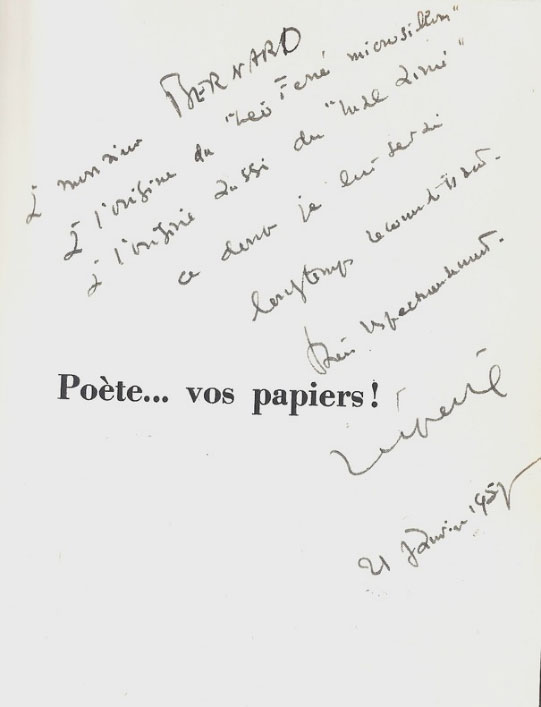 À monsieur BERNARD
À l'origine du "Léo Ferré microsillon"
à l'origine aussi du "mal aimé"
ce dont je lui serai
longtemps reconnaissant.
Très respectueusement.
Poète... vos papiers!
Léo Ferré
21 Janvier 1957